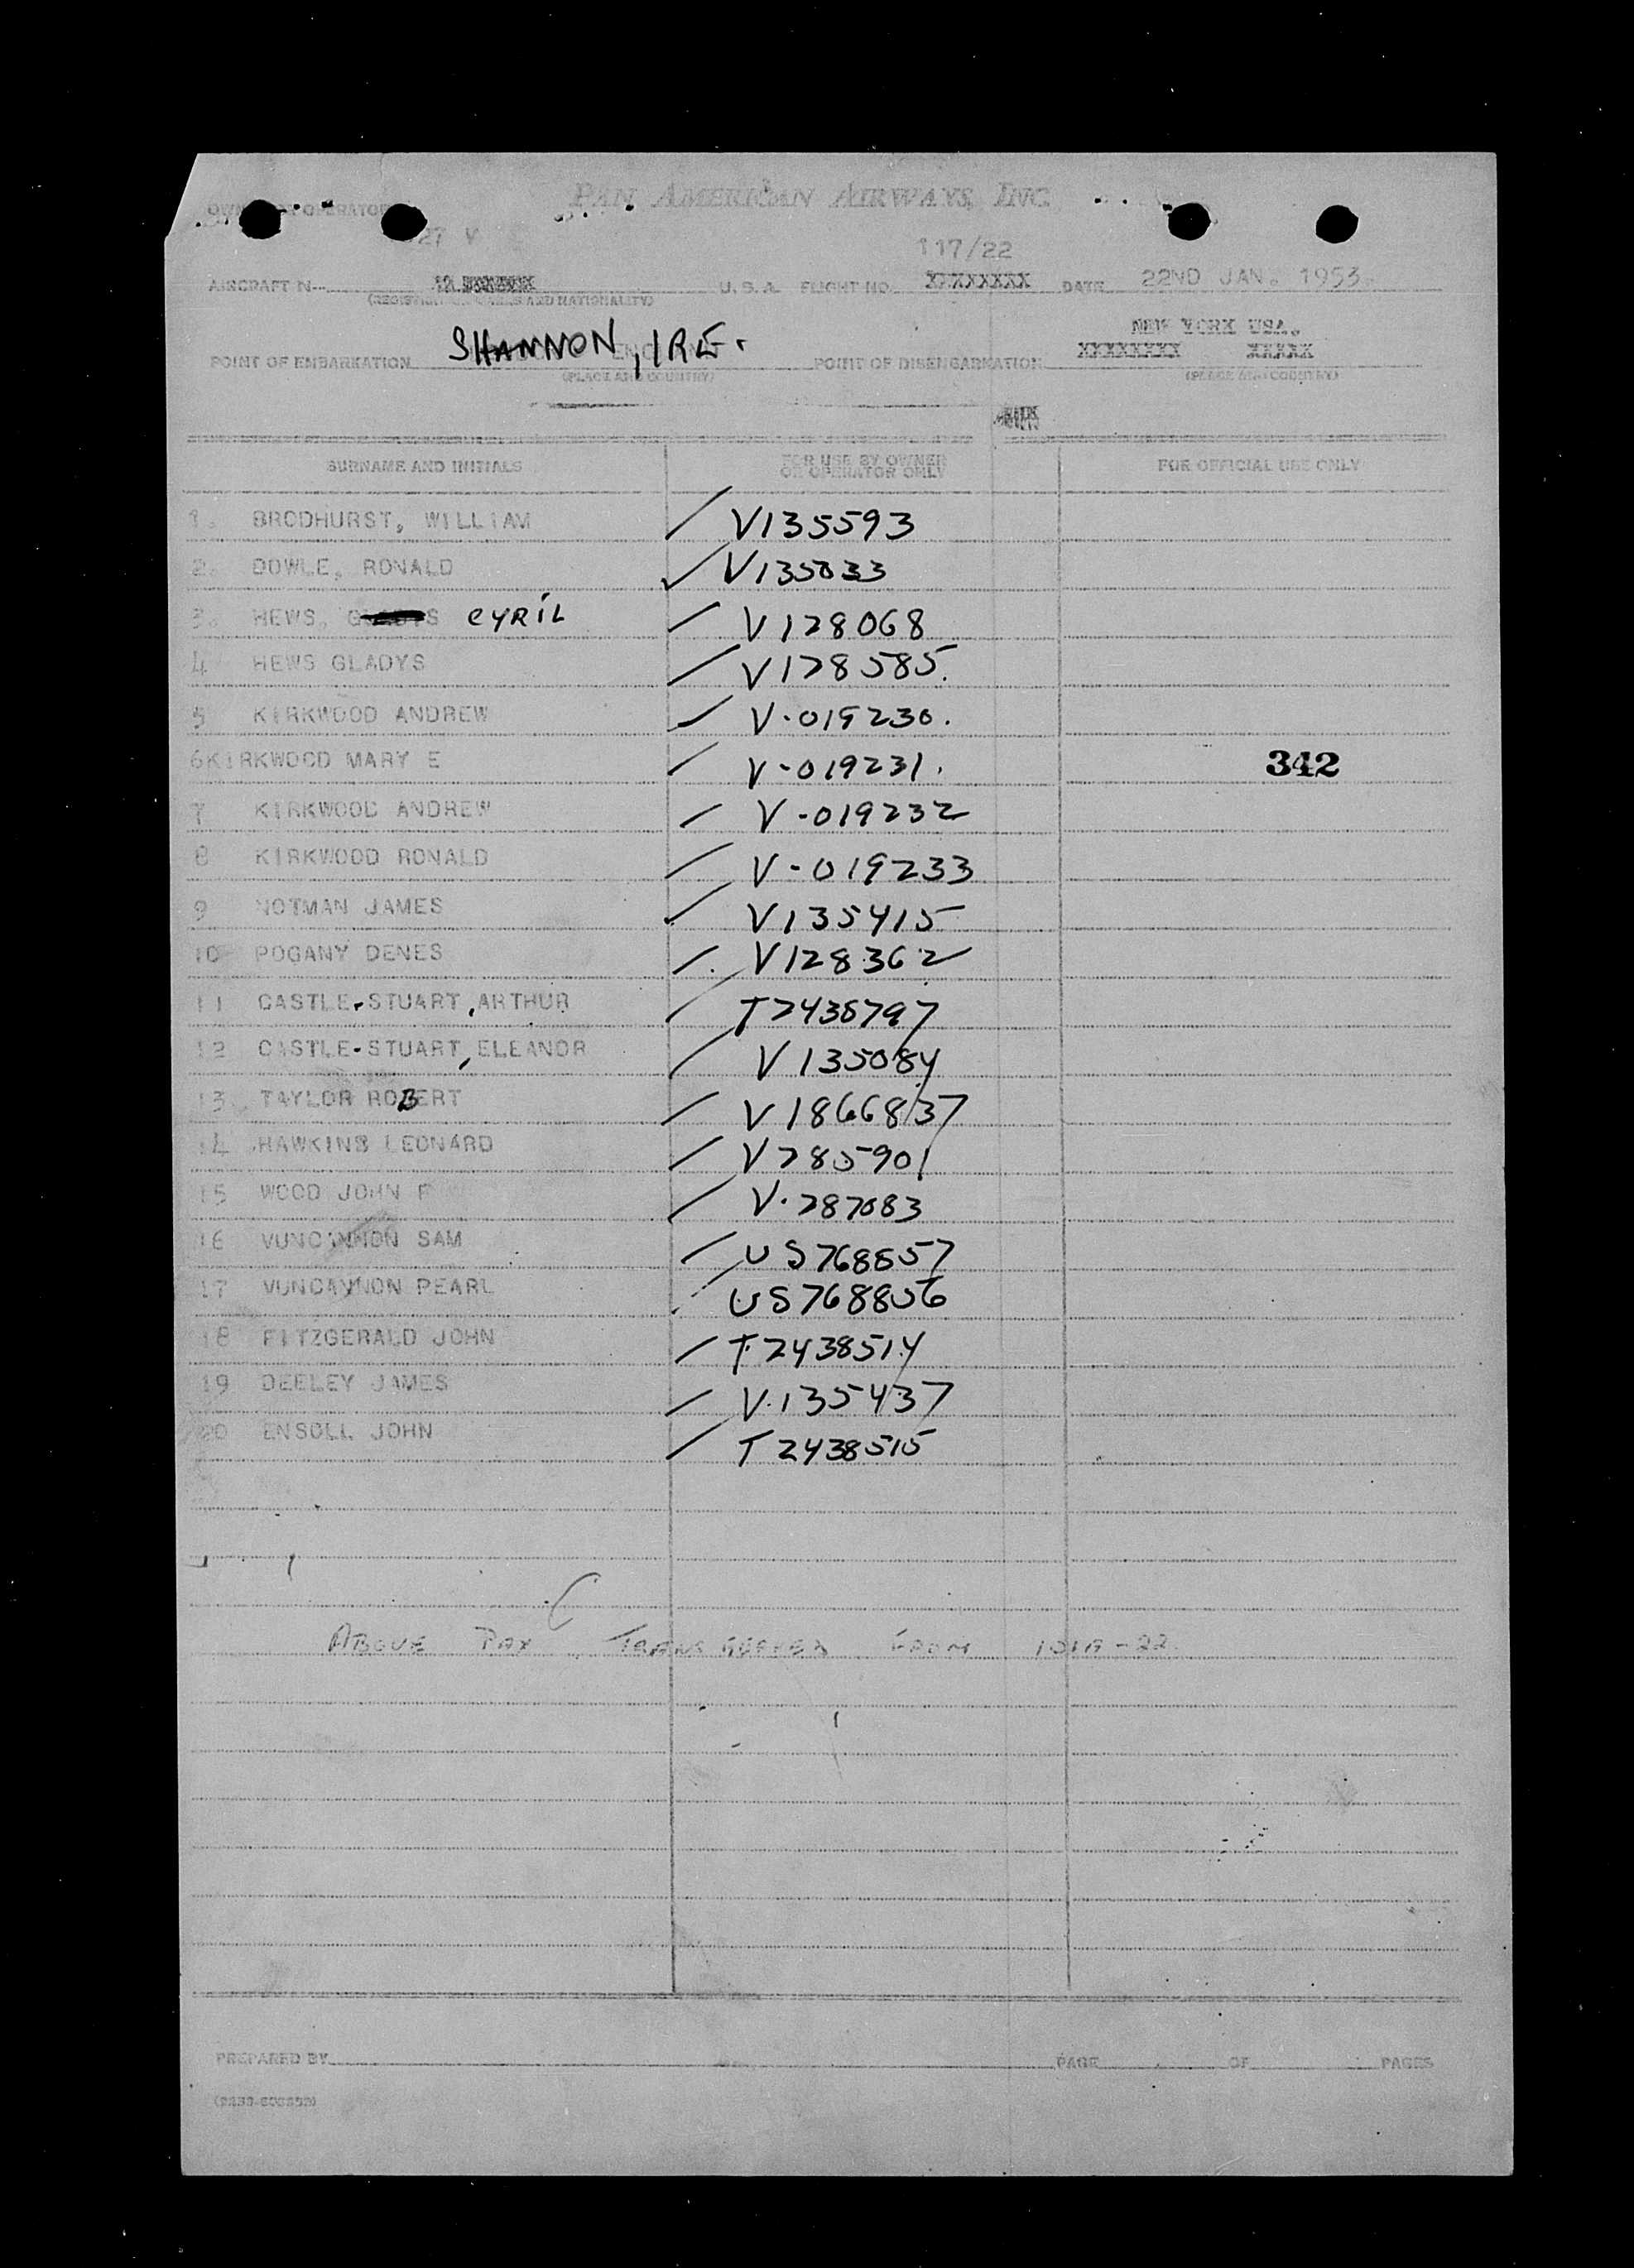 PAN AMERICAN AIRWAYS, INC.
OPERATOR
27 V 117/22
AIRCRAFT N U. S. A. FLIGHT NO. XXXXXXXX DATE 22ND JAN. 1953.
(REGISTRATION MARKS AND NATIONALITY)
NEW YORK USA.
POINT OF EMBARKATION SHANNON, IRE. POINT OF DISEMBARKATION XXXXXXXX XXXXX
(PLACE AND COUNTRY) (PLACE AND COUNTRY)
SURNAME AND INITIALS FOR USE BY OWNER OR OPERATOR ONLY FOR OFFICIAL USE ONLY
1. BRODHURST, WILLIAM V135593
2. DOWLE, RONALD V135033
3. HEWS, CYRIL V128068
4 HEWS GLADYS V128585.
5 KIRKWOOD ANDREW V-019230.
6KIRKWOOD MARY E V-019231. 342
7 KIRKWOOD ANDREW V-019232
8 KIRKWOOD RONALD V-019233
9 NOTMAN JAMES V135415
10 POGANY DENES V128362
11 CASTLE-STUART, ARTHUR T2438797
12 CASTLE-STUART, ELEANOR V135084
13 TAYLOR ROBERT V1866837
14 HAWKINS LEONARD V285901
15 WOOD JOHN F V.287083
16 VUNCANNON SAM US768857
17 VUNCANNON PEARL US768856
18 FITZGERALD JOHN T2438514
19 DEELEY JAMES V.135437
20 ENSOLL JOHN T2438515
ABOVE PAX TRANSFERRED FROM 101A-22.
PREPARED BY PAGE OF PAGES